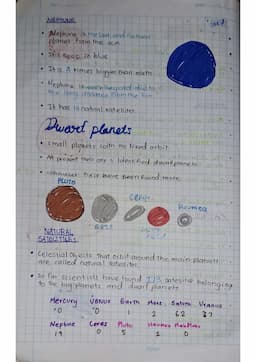 NEPTUNE
• Neptune is the last and furthest
planet from the sun
• It's in blue
• It is 4 times bigger than earth
• Neptune is
the long distance from the sun
• It has 14 natural satellites
Dwarf planets
• Small planets with no fixed orbit.
• At present there are 5 identified dwarf planets
however there have been found more.
Pluto
Ceres
Haumea
ERIS
NATURAL
SATELLITES
• Celestial Objects that orbit around the main planets
are called natural satelites.
• So far scientist have found 193 satelites belonging
to the big planets and dwarf planets
Mercury Venus Earth Mars Saturn Uranus
0 0 1 2 62 27
Neptune Ceres Pluto Haumea MakeMake
14 0 5 2 0